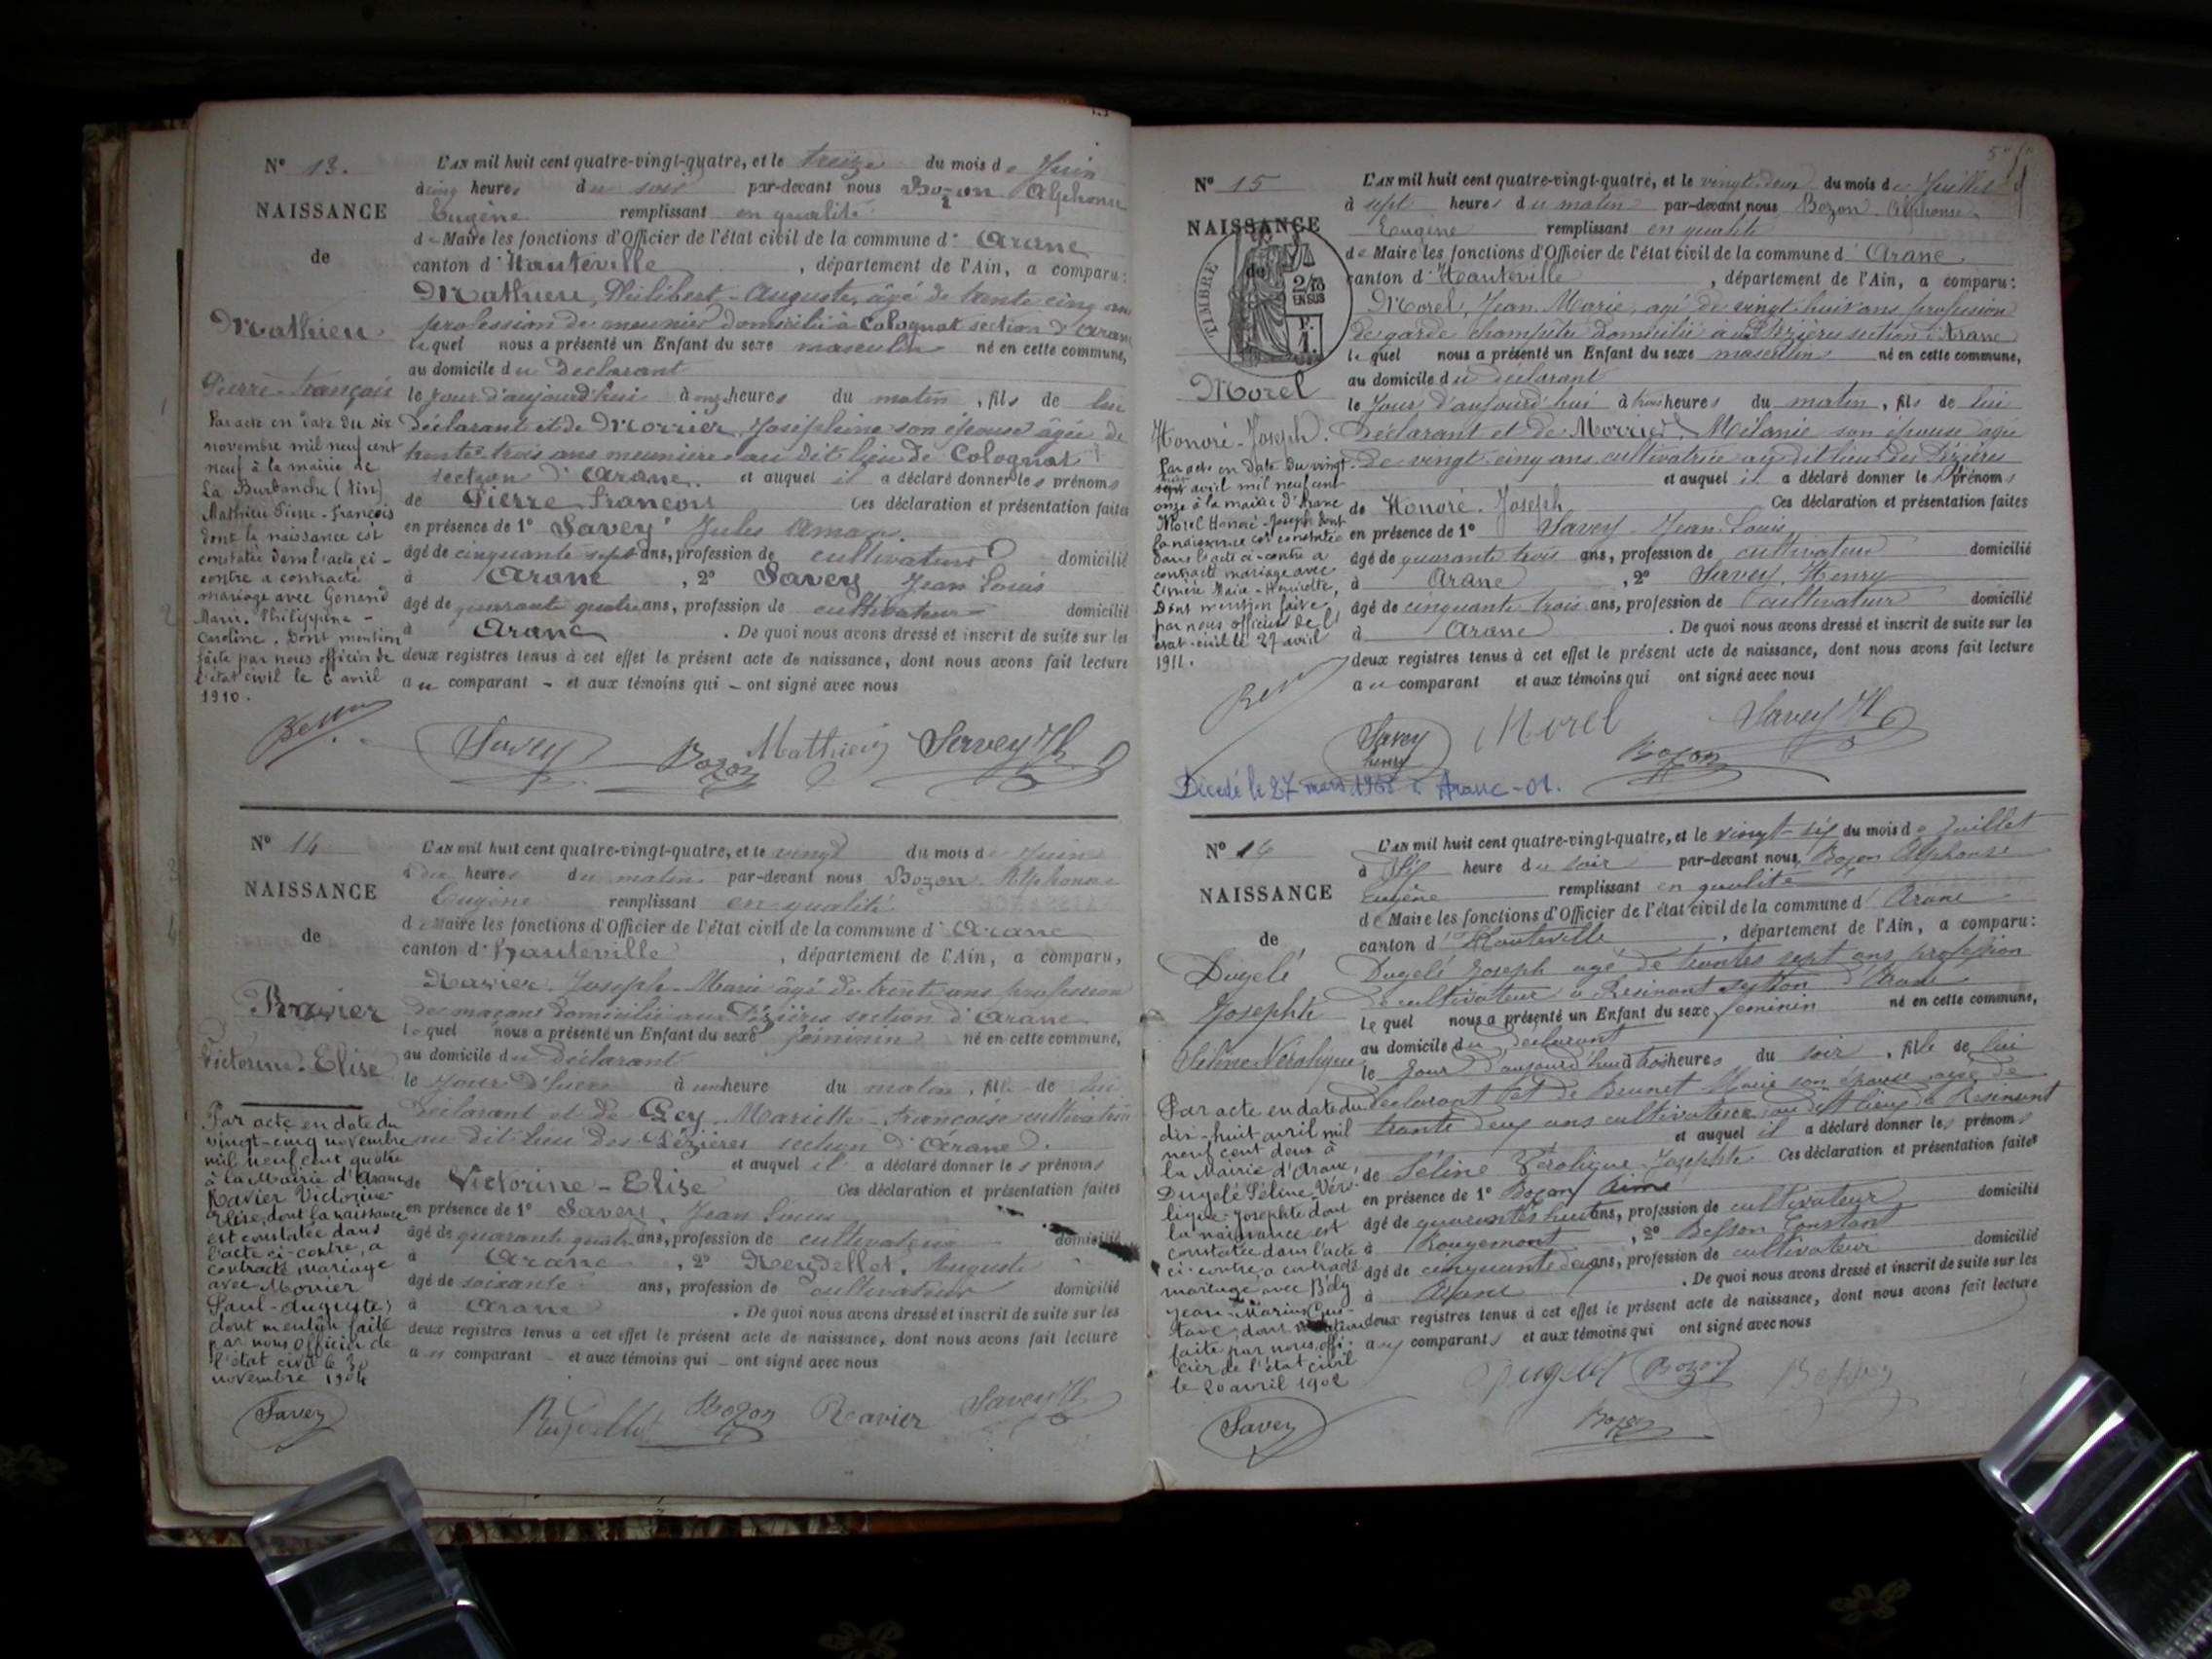 N° 13.
NAISSANCE
de
Mathieu
Pierre-François
Par acte en date du six
novembre mil neuf cent
neuf à la mairie de
La Burbanche (Ain)
Mathieu Pierre-François
dont la naissance est
constatée dans l'acte ci-
contre a contracté
mariage avec Genand
Marie-Philippine-
Caroline. Dont mention
faite par nous officier de
l'état civil le 6 avril
1910.
L'AN mil huit cent quatre-vingt-quatre, et le treize du mois de Juin
à cinq heures du soir par-devant nous Bozon Alphonse
Eugène remplissant en qualité
de Maire les fonctions d'Officier de l'état civil de la commune d' Aranc
canton d' Hauteville, département de l'Ain, a comparu:
Mathieu, Philibert-Auguste, âgé de trente cinq ans
profession de meunier domicilié à Colognat section d'Aranc
lequel nous a présenté un Enfant du sexe masculin né en cette commune,
au domicile du Déclarant
le Jour d'aujourd'hui à onze heures du matin, fils de lui
Déclarant et de Morrier, Joséphine son épouse âgée de
trente-trois ans meunière au dit lieu de Colognat
section d'Aranc. et auquel il a déclaré donner les prénoms
de Pierre François Ces déclaration et présentation faites
en présence de 1° Savey Jules Aman.
âgé de cinquante sept ans, profession de cultivateur domicilié
à Aranc, 2° Savey Jean Louis
âgé de quarante quatre ans, profession de cultivateur domicilié
à Aranc. De quoi nous avons dressé et inscrit de suite sur les
deux registres tenus à cet effet le présent acte de naissance, dont nous avons fait lecture
au comparant - et aux témoins qui - ont signé avec nous
Savey Bozon Mathieu Savey JL
N° 14
NAISSANCE
de
Ravier
Victorine-Elise
Par acte en date du
vingt-cinq novembre
mil neuf cent quatre
à la Mairie d'Aranc
Ravier Victorine-
Elise, dont la naissance
est constatée dans
l'acte ci-contre, a
contracté mariage
avec Morrier
Paul-Auguste,
dont mention faite
par nous officier de
l'état civil le 30
novembre 1904
Savey
L'AN mil huit cent quatre-vingt-quatre, et le vingt du mois de Juin
à dix heures du matin par-devant nous Bozon Alphonse
Eugène remplissant en qualité
de Maire les fonctions d'Officier de l'état civil de la commune d' Aranc
canton d' Hauteville, département de l'Ain, a comparu,
Ravier Joseph-Marie âgé de trente ans profession
de maçon domicilié aux Pézières section d'Aranc
lequel nous a présenté un Enfant du sexe féminin né en cette commune,
au domicile du Déclarant
le Jour d'hier à une heure du matin, fille de lui
Déclarant et de Gey, Mariette-Françoise cultivatrice
au dit lieu des Pézières section d'Aranc.
et auquel il a déclaré donner les prénoms
de Victorine-Elise Ces déclaration et présentation faites
en présence de 1° Savey, Jean Louis
âgé de quarante quatre ans, profession de cultivateur domicilié
à Aranc, 2° Reydellet, Auguste
âgé de soixante ans, profession de cultivateur domicilié
à Aranc. De quoi nous avons dressé et inscrit de suite sur les
deux registres tenus à cet effet le présent acte de naissance, dont nous avons fait lecture
au comparant - et aux témoins qui - ont signé avec nous
Reydellet Bozon Ravier Savey JL
N° 15
NAISSANCE
de
TIMBRE
2/10
EN SUS
Morel
Honoré-Joseph.
Par acte en date du vingt
sept avril mil neuf cent
onze à la mairie d'Aranc
Morel Honoré-Joseph dont
la naissance est constatée
dans l'acte ci-contre a
contracté mariage avec
Marie-Henriette,
Dont mention faite
par nous officier de l'
état-civil le 27 avril
1911.
L'AN mil huit cent quatre-vingt-quatre, et le vingt deux du mois de Juillet
à sept heures du matin par-devant nous Bozon Alphonse
Eugène remplissant en qualité
de Maire les fonctions d'Officier de l'état civil de la commune d' Aranc
canton d' Hauteville, département de l'Ain, a comparu:
Morel, Jean Marie, âgé de vingt-huit ans profession
de garde champêtre domicilié aux Pézières section d'Aranc
lequel nous a présenté un Enfant du sexe masculin né en cette commune,
au domicile du déclarant
le Jour d'aujourd'hui à trois heures du matin, fils de lui
Déclarant et de Morrier Mélanie son épouse âgée
de vingt-cinq ans cultivatrice au dit lieu des Pézières
et auquel il a déclaré donner les prénoms
de Honoré-Joseph Ces déclaration et présentation faites
en présence de 1° Savey Jean Louis
âgé de quarante trois ans, profession de cultivateur domicilié
à Aranc, 2° Savey, Henry
âgé de cinquante trois ans, profession de cultivateur domicilié
à Aranc. De quoi nous avons dressé et inscrit de suite sur les
deux registres tenus à cet effet le présent acte de naissance, dont nous avons fait lecture
au comparant et aux témoins qui ont signé avec nous
Savey henry Morel Bozon Savey JL
Décédé le 27 mars 1968 à Aranc-01.
N° 16
NAISSANCE
de
Dugelé
Josephte
Séline Véroligue
Par acte en date du
dix-huit avril mil
neuf cent deux à
la Mairie d'Aranc,
Dugelé Séline-Véro-
ligue-Josephte dont
la naissance est
constatée dans l'acte
ci-contre, a contracté
mariage avec Bély
Jean-Marius-Gus-
tave, dont mention
faite par nous, offi-
cier de l'état civil
le 20 avril 1902
Savey
L'AN mil huit cent quatre-vingt-quatre, et le vingt-six du mois de Juillet
à Six heure du soir par-devant nous, Bozon Alphonse
Eugène remplissant en qualité
de Maire les fonctions d'Officier de l'état civil de la commune d' Aranc
canton d' Hauteville, département de l'Ain, a comparu:
Dugelé Joseph agé de trentes sept ans profession
de cultivateur à Résinant section d'Aranc
lequel nous a présenté un Enfant du sexe feminin né en cette commune,
au domicile du déclarant
le Jour d'aujourd'hui à trois heures du soir, fille de lui
declarant et de Brunet Marie son épouse agée de
trante deux ans cultivateur au dit lieux de Resinant
et auquel il a déclaré donner les prénoms
de Séline Véroligue-Josephte Ces déclaration et présentation faites
en présence de 1° Bozon Aimé
âgé de quarantes huit ans, profession de cultivateur domicilié
à Rougemont, 2° Besson Constant
âgé de cinquante deux ans, profession de cultivateur domicilié
à Aranc. De quoi nous avons dressé et inscrit de suite sur les
deux registres tenus à cet effet le présent acte de naissance, dont nous avons fait lecture
aux comparants et aux témoins qui ont signé avec nous
Dugelé Bozon Besson
Bozon